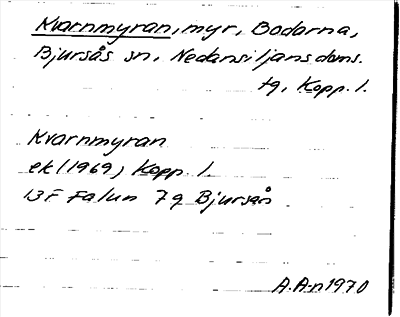 Kvarnmyran, myr, Bodarna,
Bjursås sn, Nedansiljans doms.
tg, Kopp. l.
Kvarnmyran
ek (1969) Kopp. l.
13F Falun 7g Bjursås
A.A-n 1970